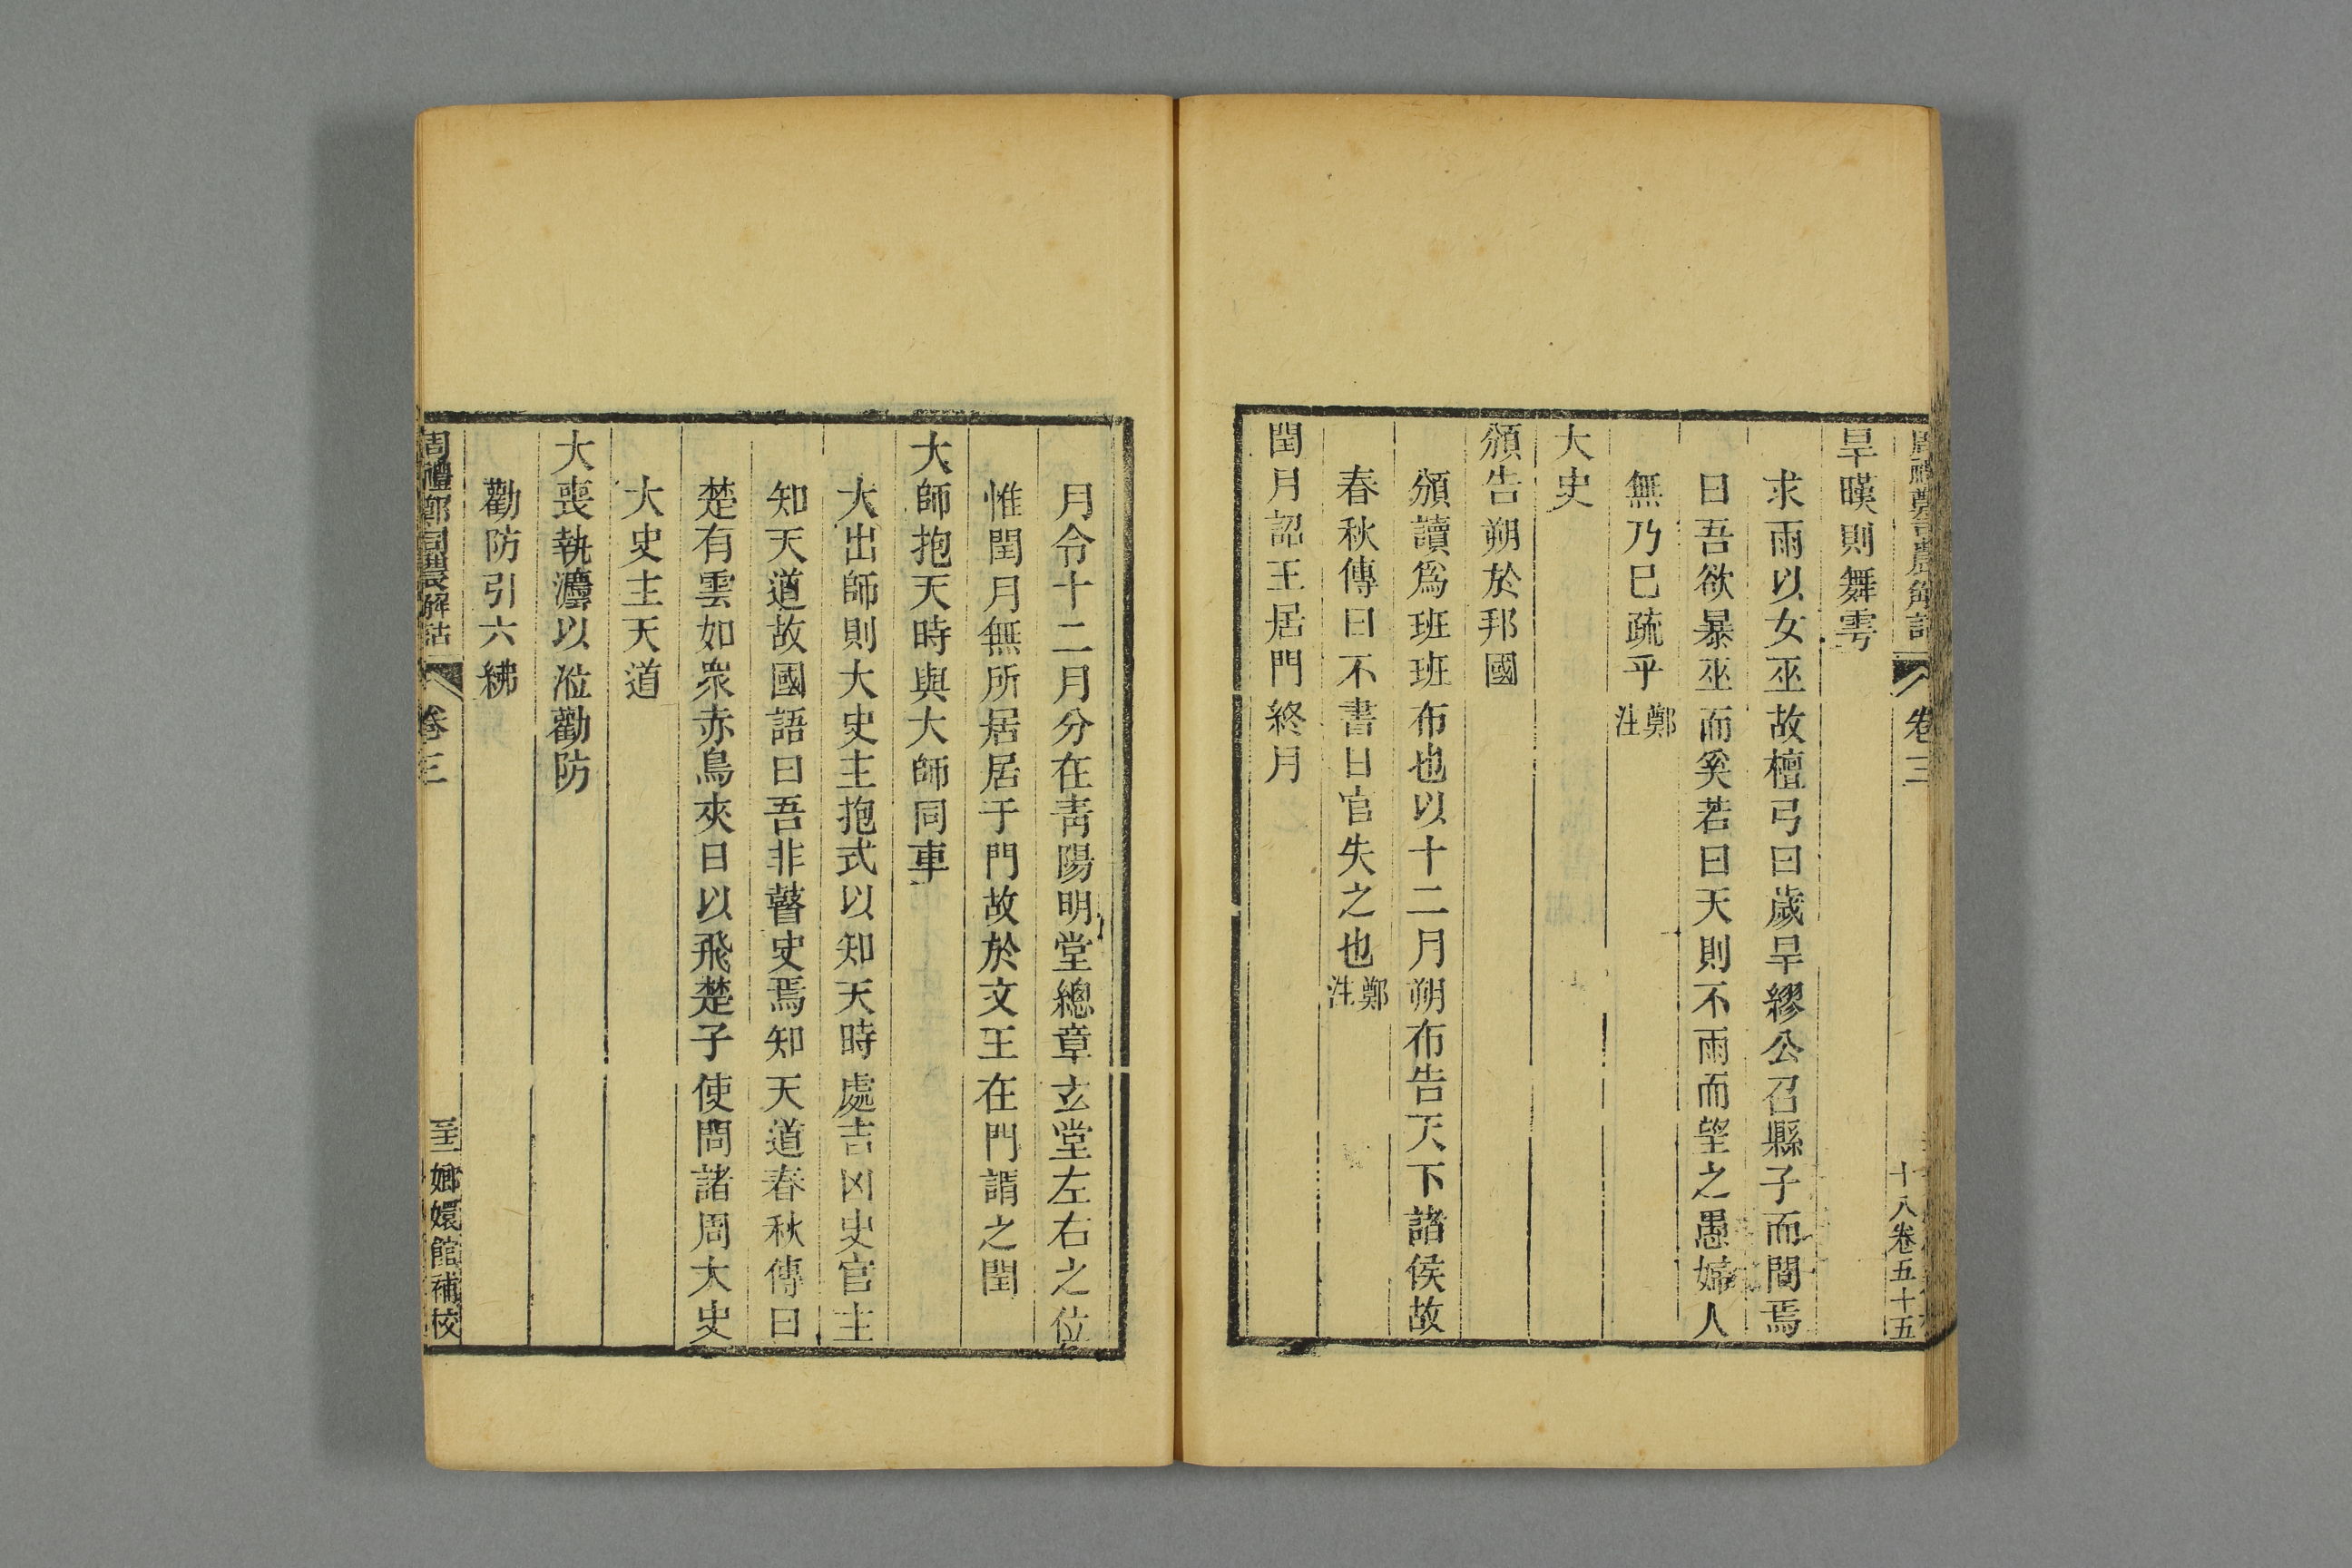 周禮鄭司農解詁 卷三
十八卷五十五
旱暵則舞雩
求雨以女巫故檀弓曰歲旱繆公召縣子而問焉
曰吾欲暴巫而奚若曰天則不雨而望之愚婦人
無乃已疏乎鄭注
大史
頒告朔於邦國
頒讀爲班班布也以十二月朔布告天下諸侯故
春秋傳曰不書日官失之也鄭注
閏月詔王居門終月
月令十二月分在靑陽明堂總章玄堂左右之位
惟閏月無所居居于門故於文王在門謂之閏
大師抱天時與大師同車
大出師則大史主抱式以知天時處吉凶史官主
知天道故國語曰吾非瞽史焉知天道春秋傳曰
楚有雲如衆赤鳥夾日以飛楚子使問諸周大史
大史主天道
大喪執灋以涖勸防
勸防引六紼
周禮鄭司農解詁 卷三
嫏嬛館補校